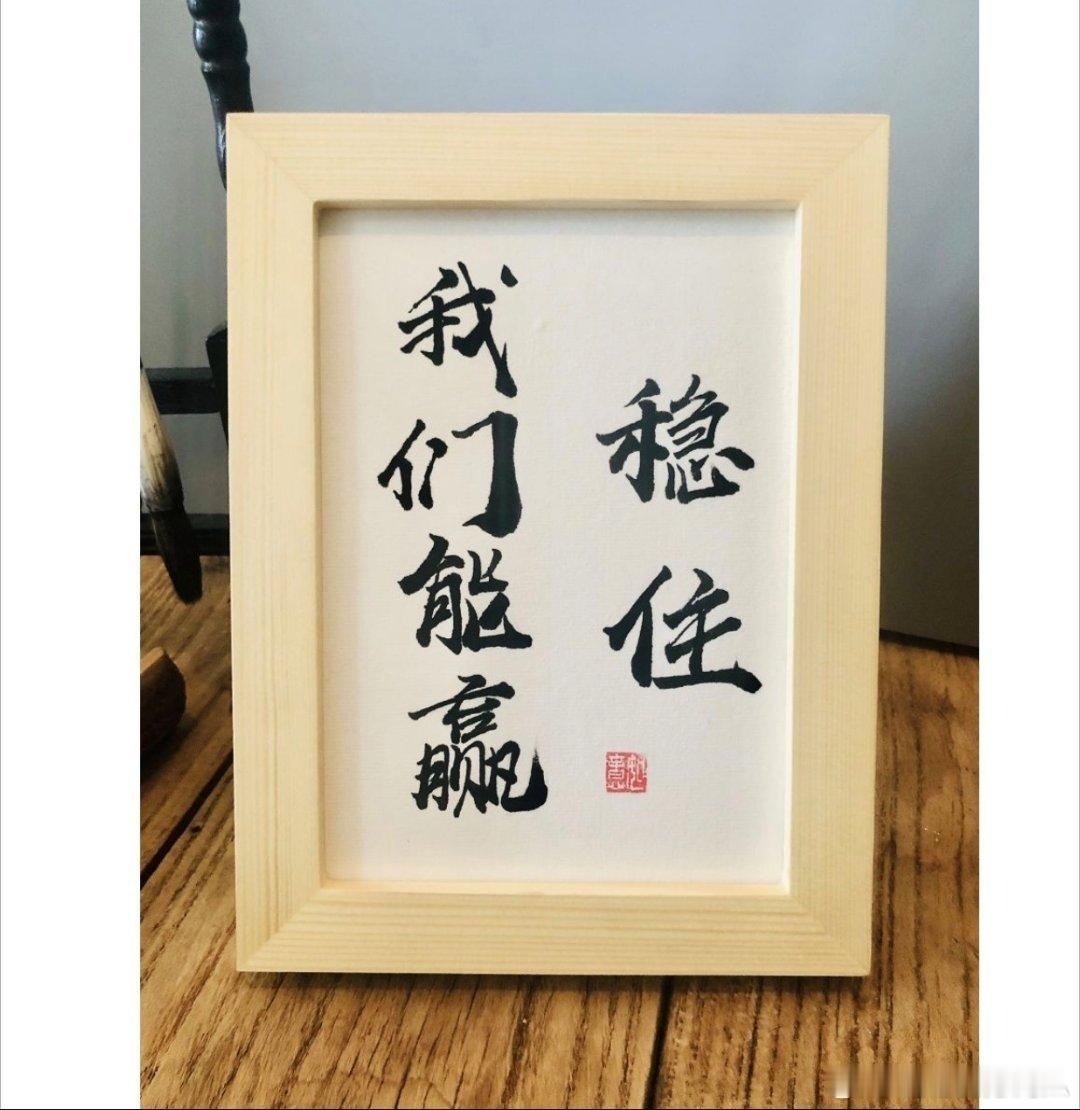 稳住
我们能赢